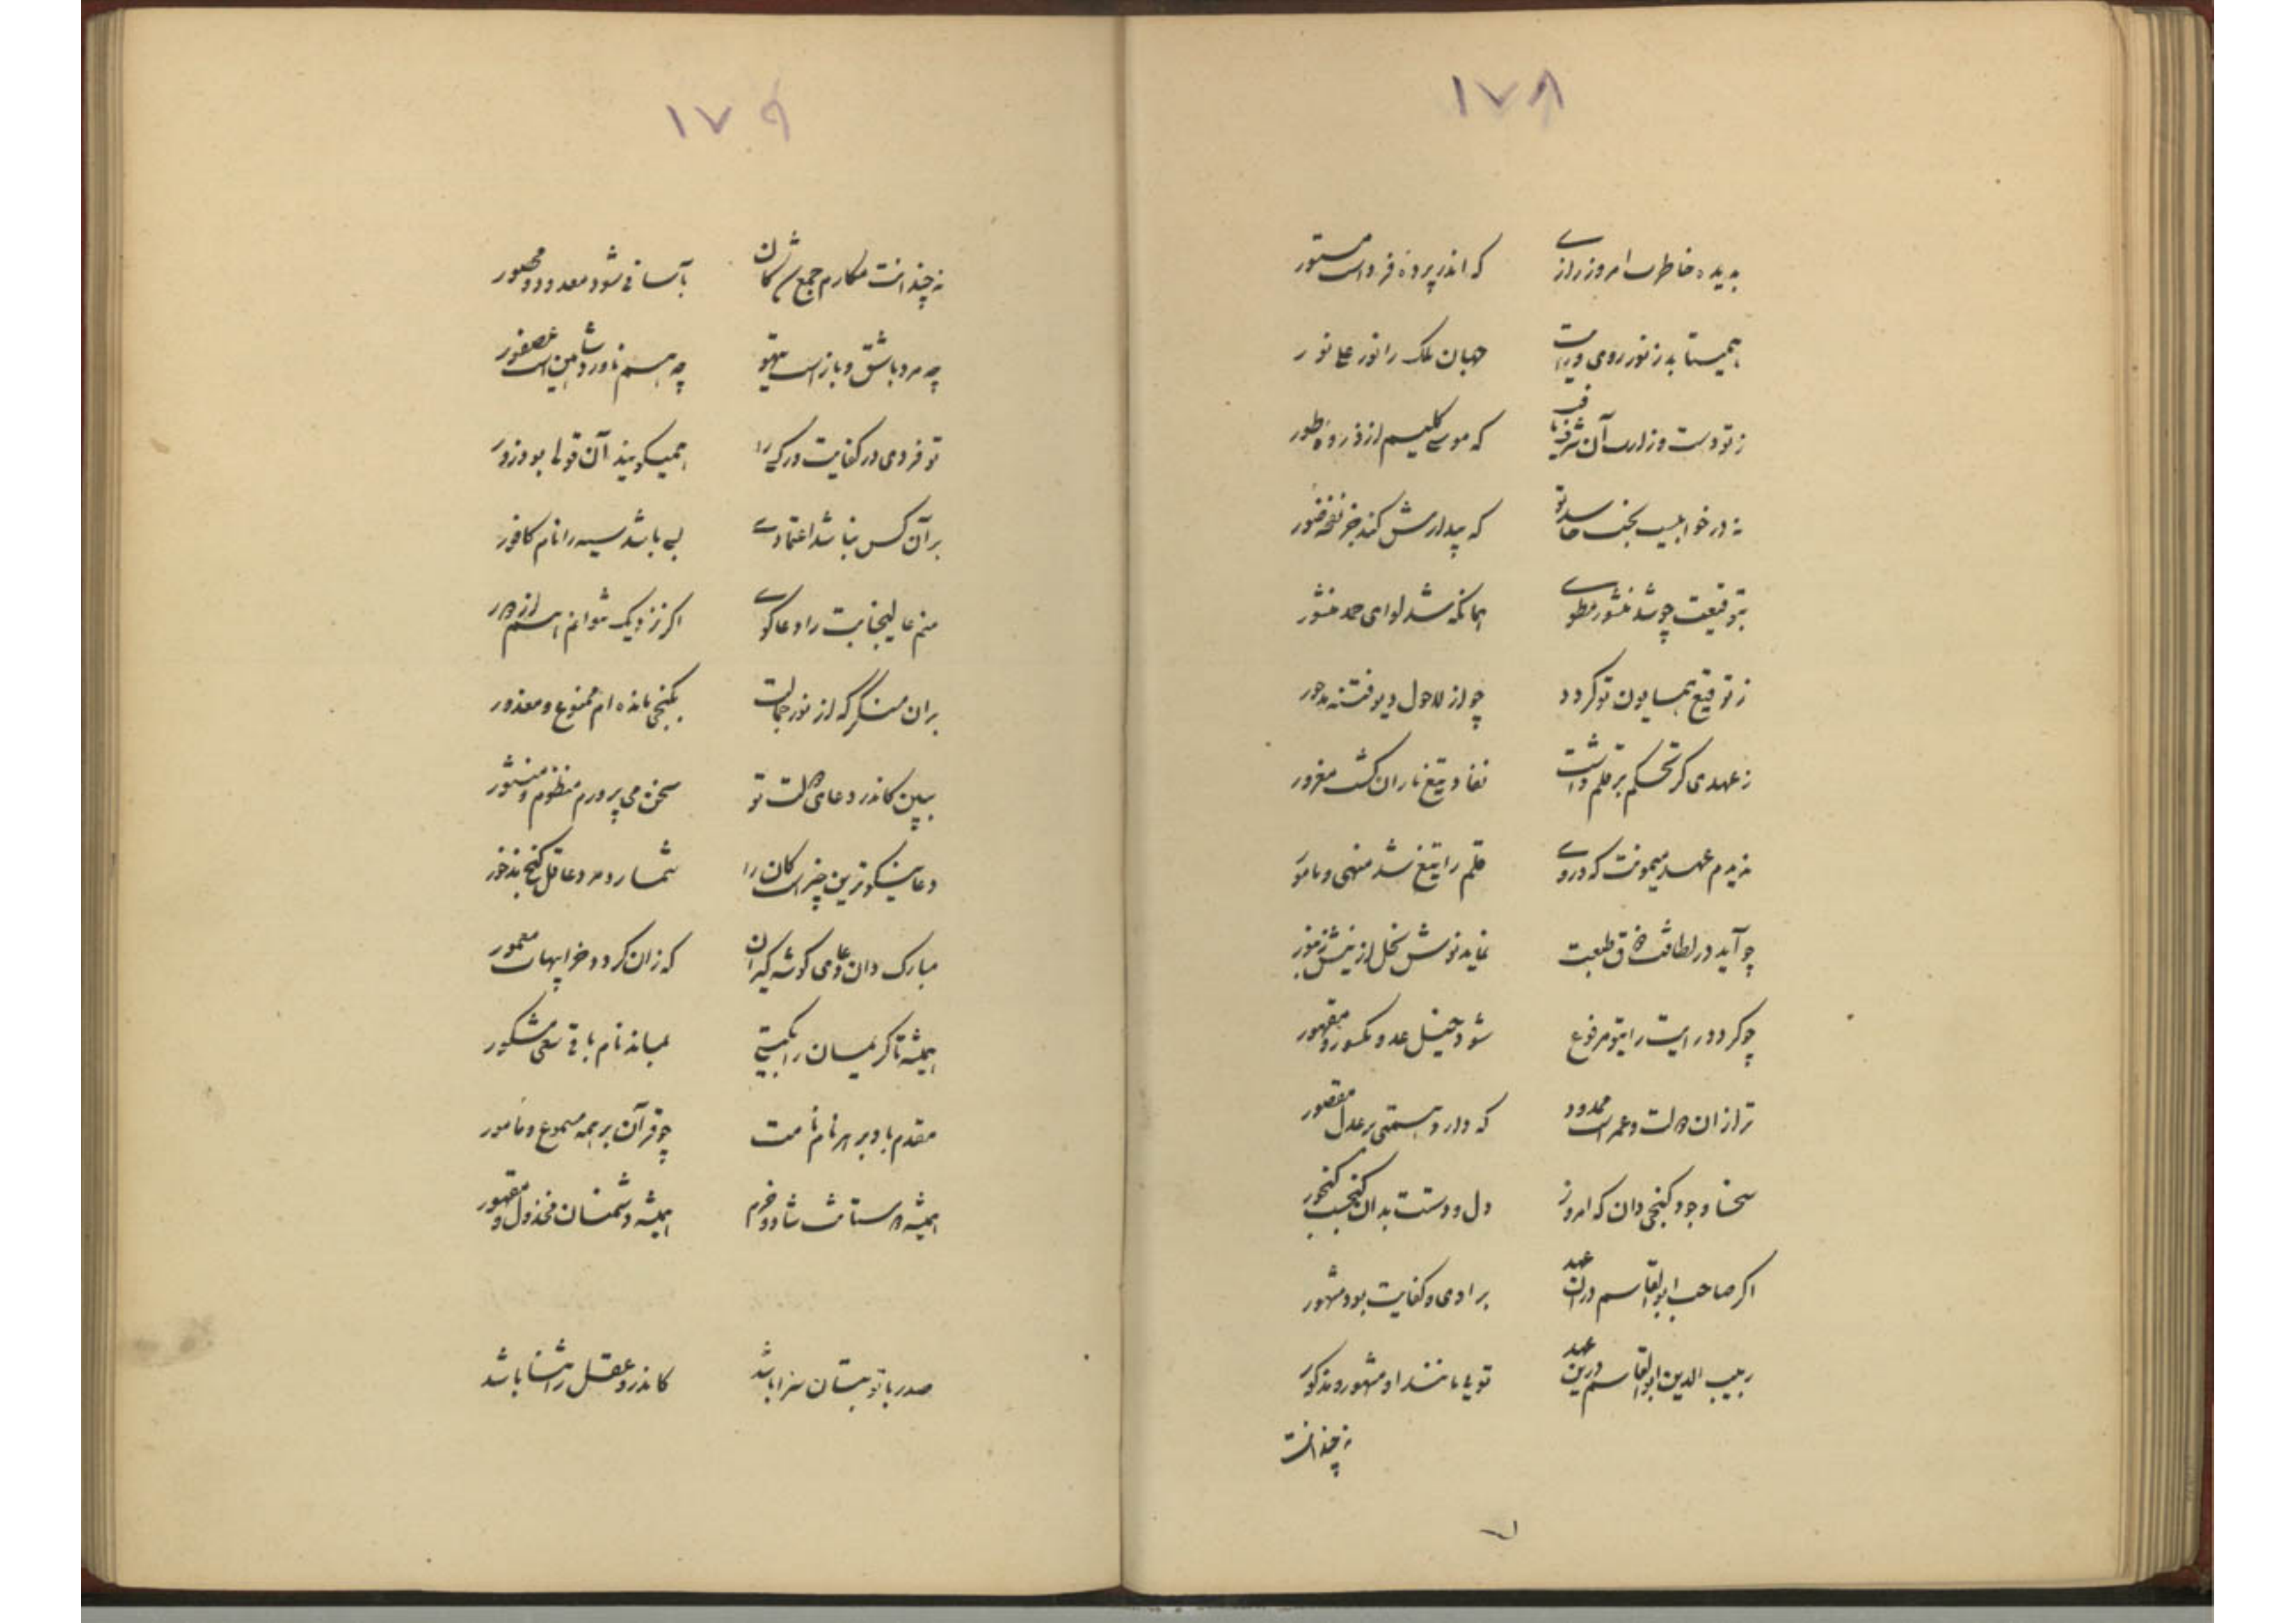 ١٧٨
بدیده خاطرت امروز رازی که اندر پرده فرداست مستور
همیستابد ز نور روی ورایت جهان ملک را نور علی نور
ز تو دست وزارت آن شرف یافت که موسی کلیم از ذروهٔ طور
نه در خوابیست بخت حاسد تو که بیدارش کند جز نفخه صور
بتوقیعت چو شد منشور مطوی همانکه شد لوای حمد منشور
ز توقیع همایون تو کردد چو از لاحول دیو فتنه مدحور
ز عهدی کز تحکم بر قلم داشت نفاذ تیغ ناران کشت مغرور
ندیدم عهد میمونت که دروی قلم را تیغ شد منهی و مامور
چو آید در لطافت خلق طبعت نماید نوش نحل از نیش زنبور
چو کردد رایت رایتو مرفوع شود خیل عدو مکسور و مقهور
ترا زان دولت و عمرست ممدود که دارد همتی بر عدل مقصور
سخا و جود کنجی دان که امروز دل و دستت بدان کنجست کنجور
اکر صاحب ابوالقاسم در ان عهد برادی و کفایت بود مشهور
ربیب الدین ابوالقاسم درین عهد تویی مانند او مشهور و مذکور
نه چندانست
١٧٩
نه چندانست مکارم جمع ایشان بآسانی شود معدود و محصور
چه مرد باشق و بازست تیهو چه هم ناورد شاهین است عصفور
تو فردی در کفایت ور کسی را همیکویند آن قولی بود زور
بر آن کس نباشد اعتمادی بسی باشد سیه را نام کافور
منم عالیجنابت را دعا کوی اکر نزدیک شوانم هم از دور
بدان منکر که از نور جمالت بکنجی مانده ام ممنوع و معذور
ببین کاندر دعای دولت تو سخن می پرورم منظوم و منثور
دعا نیکوترین چیزیست کان را شمارد مرد عاقل کنج مذخور
مبارک دان دعای کوشه کیران که زان کردد خرابیهات معمور
همیشه تا کریمان را بکیتی بماند نام باقی سعی مشکور
مقدم باد بر هر نام نامت چو قرآن بر همه مسموع و مامور
همیشه دوستانت شاد و خرم همیشه دشمنان مخذول و مقهور
صدر با تو بستان سزا باشد کاندرو عقل رهنما باشد